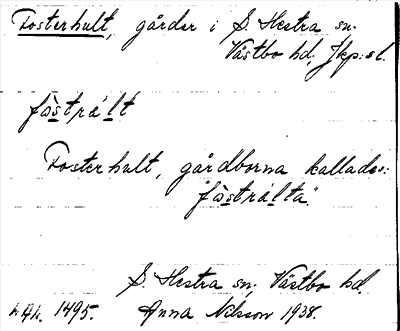 Fosterhult, gårdar i S. Hestra sn.
Västbo hd. Jkp:s l.
fàstrált
Fosterhult, gårdborna kallades:
"fàstrálta".
S. Hestra sn. Västbo hd.
1495. Anna Nilsson 1938.